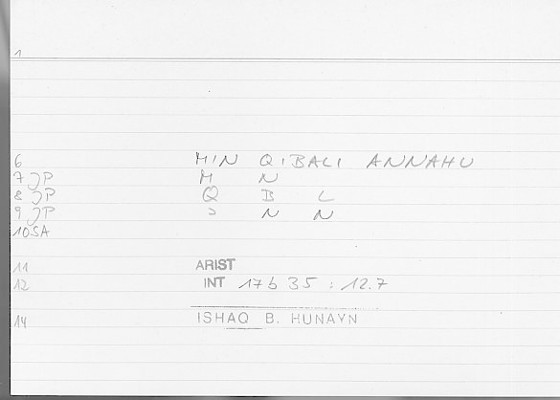 1
6 MIN QIBALI ANNAHU
7 JP M N
8 JP Q B L
9 JP ɔ N N
10 SA
11 ARIST
12 INT 17b 35 : 12.7
14 ISHAQ B. HUNAYN